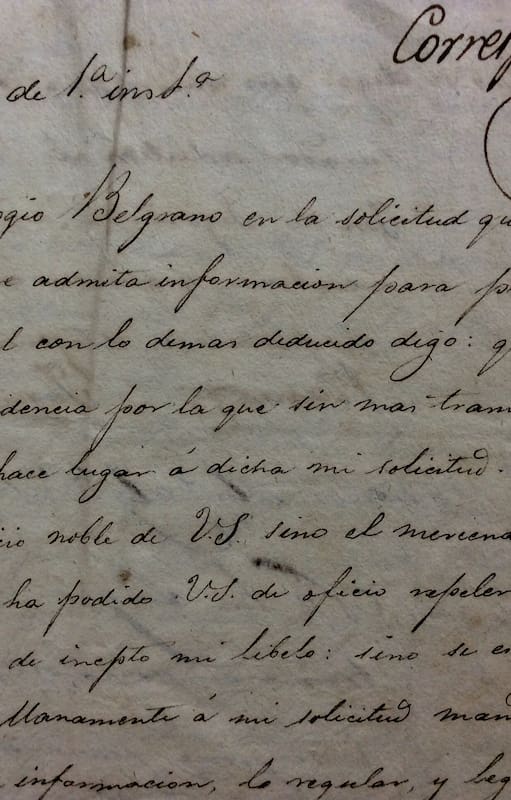 Corres
de 1.ª inst.ª
ogio Belgrano en la solicitud qu
e admita informacion para p
l con lo demas deducido digo: q
idencia por la que sin mas tram
hace lugar á dicha mi solicitud.
cio noble de V.S. sino el mercena
ha podido V.S. de oficio repeler
de inepto mi libelo: sino se es
llanamente á mi solicitud man
informacion, lo regular, y leg